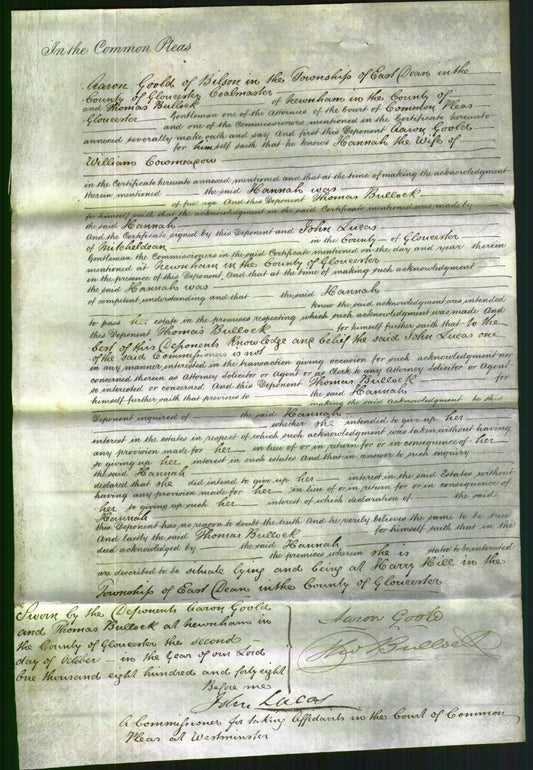 In the Common Pleas
Aaron Goold of Bilson in the Township of East Dean in the
County of Gloucester Coalmaster
and Thomas Bullock of Newnham in the County of
Gloucester Gentleman one of the Attornies of the Court of Common Pleas
and one of the Commissioners mentioned in the Certificate hereunto
annexed severally make oath and say And first this Deponent Aaron Goold
for himself saith that he knows Hannah the Wife of
William
in the Certificate hereunto annexed mentioned and that at the time of making the acknowledgment
therein mentioned the said Hannah was
of full age And this Deponent Thomas Bullock
for himself saith that the acknowledgment in the said Certificate mentioned was made by
the said Hannah
And the Certificate signed by this Deponent and John Lucas
of Micheldean in the County of Gloucester
Gentleman the Commissioners in the said Certificate mentioned on the day and year therein
mentioned at Newnham in the County of Gloucester
in the presence of this Deponent, And that at the time of making such acknowledgment
the said Hannah was
of competent understanding and that the said Hannah
knew the said acknowledgment was intended
to pass her estate in the premises respecting which such acknowledgment was made And
this Deponent Thomas Bullock for himself further saith that to the
best of this Deponents knowledge and belief the said John Lucas one
of the said Commissioners is not
in any manner interested in the transaction giving occasion for such acknowledgment nor
concerned therein as Attorney Solicitor or Agent or as Clerk to any Attorney Solicitor or Agent
so interested or concerned And this Deponent Thomas Bullock for
himself further saith that previous to the said Hannah
making the said acknowledgment he this
Deponent inquired of the said Hannah
whether she intended to give up her
interest in the estates in respect of which such acknowledgment was taken without having
any provision made for her in lieu of or in return for or in consequence of her
so giving up her interest in such estates And that in answer to such enquiry
the said Hannah
declared that she did intend to give up her interest in the said Estates without
having any provision made for her in lieu of or in return for or in consequence of
her so giving up such her interest of which declaration of the said
Hannah
this Deponent has no reason to doubt the truth And he verily believes the same to be true
And lastly the said Thomas Bullock for himself saith that in the
deed acknowledged by the said Hannah
the premises wherein she is stated to be interested
are described to be situate lying and being at Harry Hill in the
Township of East Dean in the County of Gloucester
Sworn by the Deponents Aaron Goold
and Thomas Bullock at Newnham in
the County of Gloucester the second
day of October in the year of our Lord
One thousand eight hundred and forty eight
Before me
John Lucas
A Commissioner for taking Affidavits in the Court of Common
Pleas at Westminster
Aaron Goold
Thos Bullock